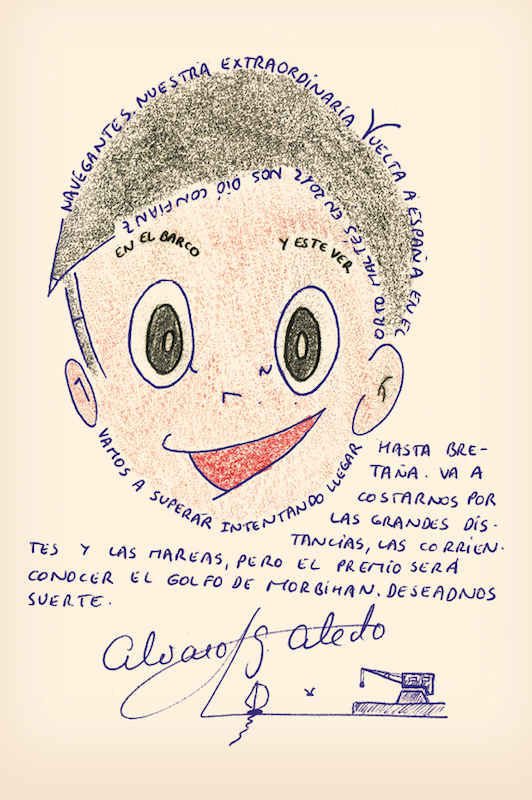 NAVEGANTES. NUESTRA EXTRAORDINARIA VUELTA A ESPAÑA EN EL
ORTO MALTÉS EN 2012 NOS DIÓ CONFIANZ
EN EL BARCO
Y ESTE VER
VAMOS A SUPERAR INTENTANDO LLEGAR
HASTA BRE-
TAÑA. VA A
COSTARNOS POR
LAS GRANDES DIS-
TANCIAS, LAS CORRIEN-
TES Y LAS MAREAS, PERO EL PREMIO SERÁ
CONOCER EL GOLFO DE MORBIHAN. DESEADNOS
SUERTE.
Alvaro G. Aledo